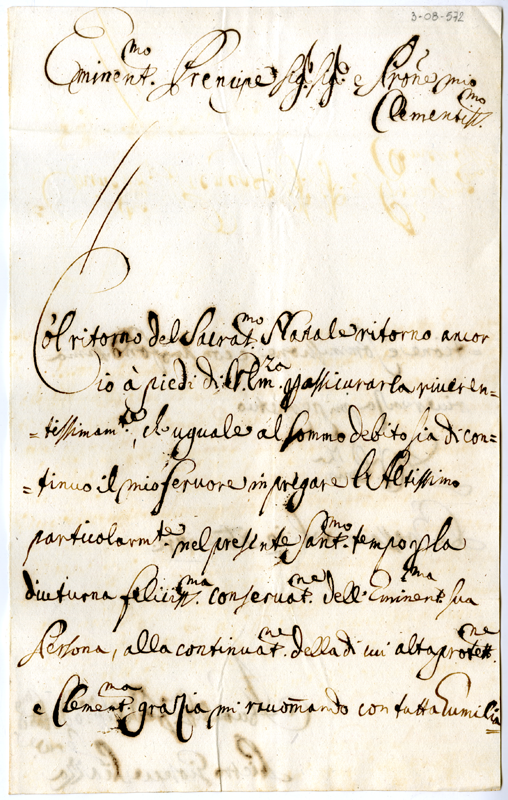 3-08-572
Eminent.mo Prencipe Sig.r Sig.r e Prõne mio
Clementiss.mo
Col ritorno del Sacrat.mo Natale ritorno ancor
io à piedi di V. Em.za p assicurarla riveren=
=tissimam.te, ch' uguale al sommo debito sia di con=
=tinuo il mio fervore in pregare l'Altissimo
particolarm.te nel presente Sant.mo tempo p la
diuturna feliciss.ma conservat.ne dell' Eminent.ma sua
Persona, alla continuat.ne della di cui alta protett.ne
e Clement.ma grazia mi racõmando con tutta l'umilia=